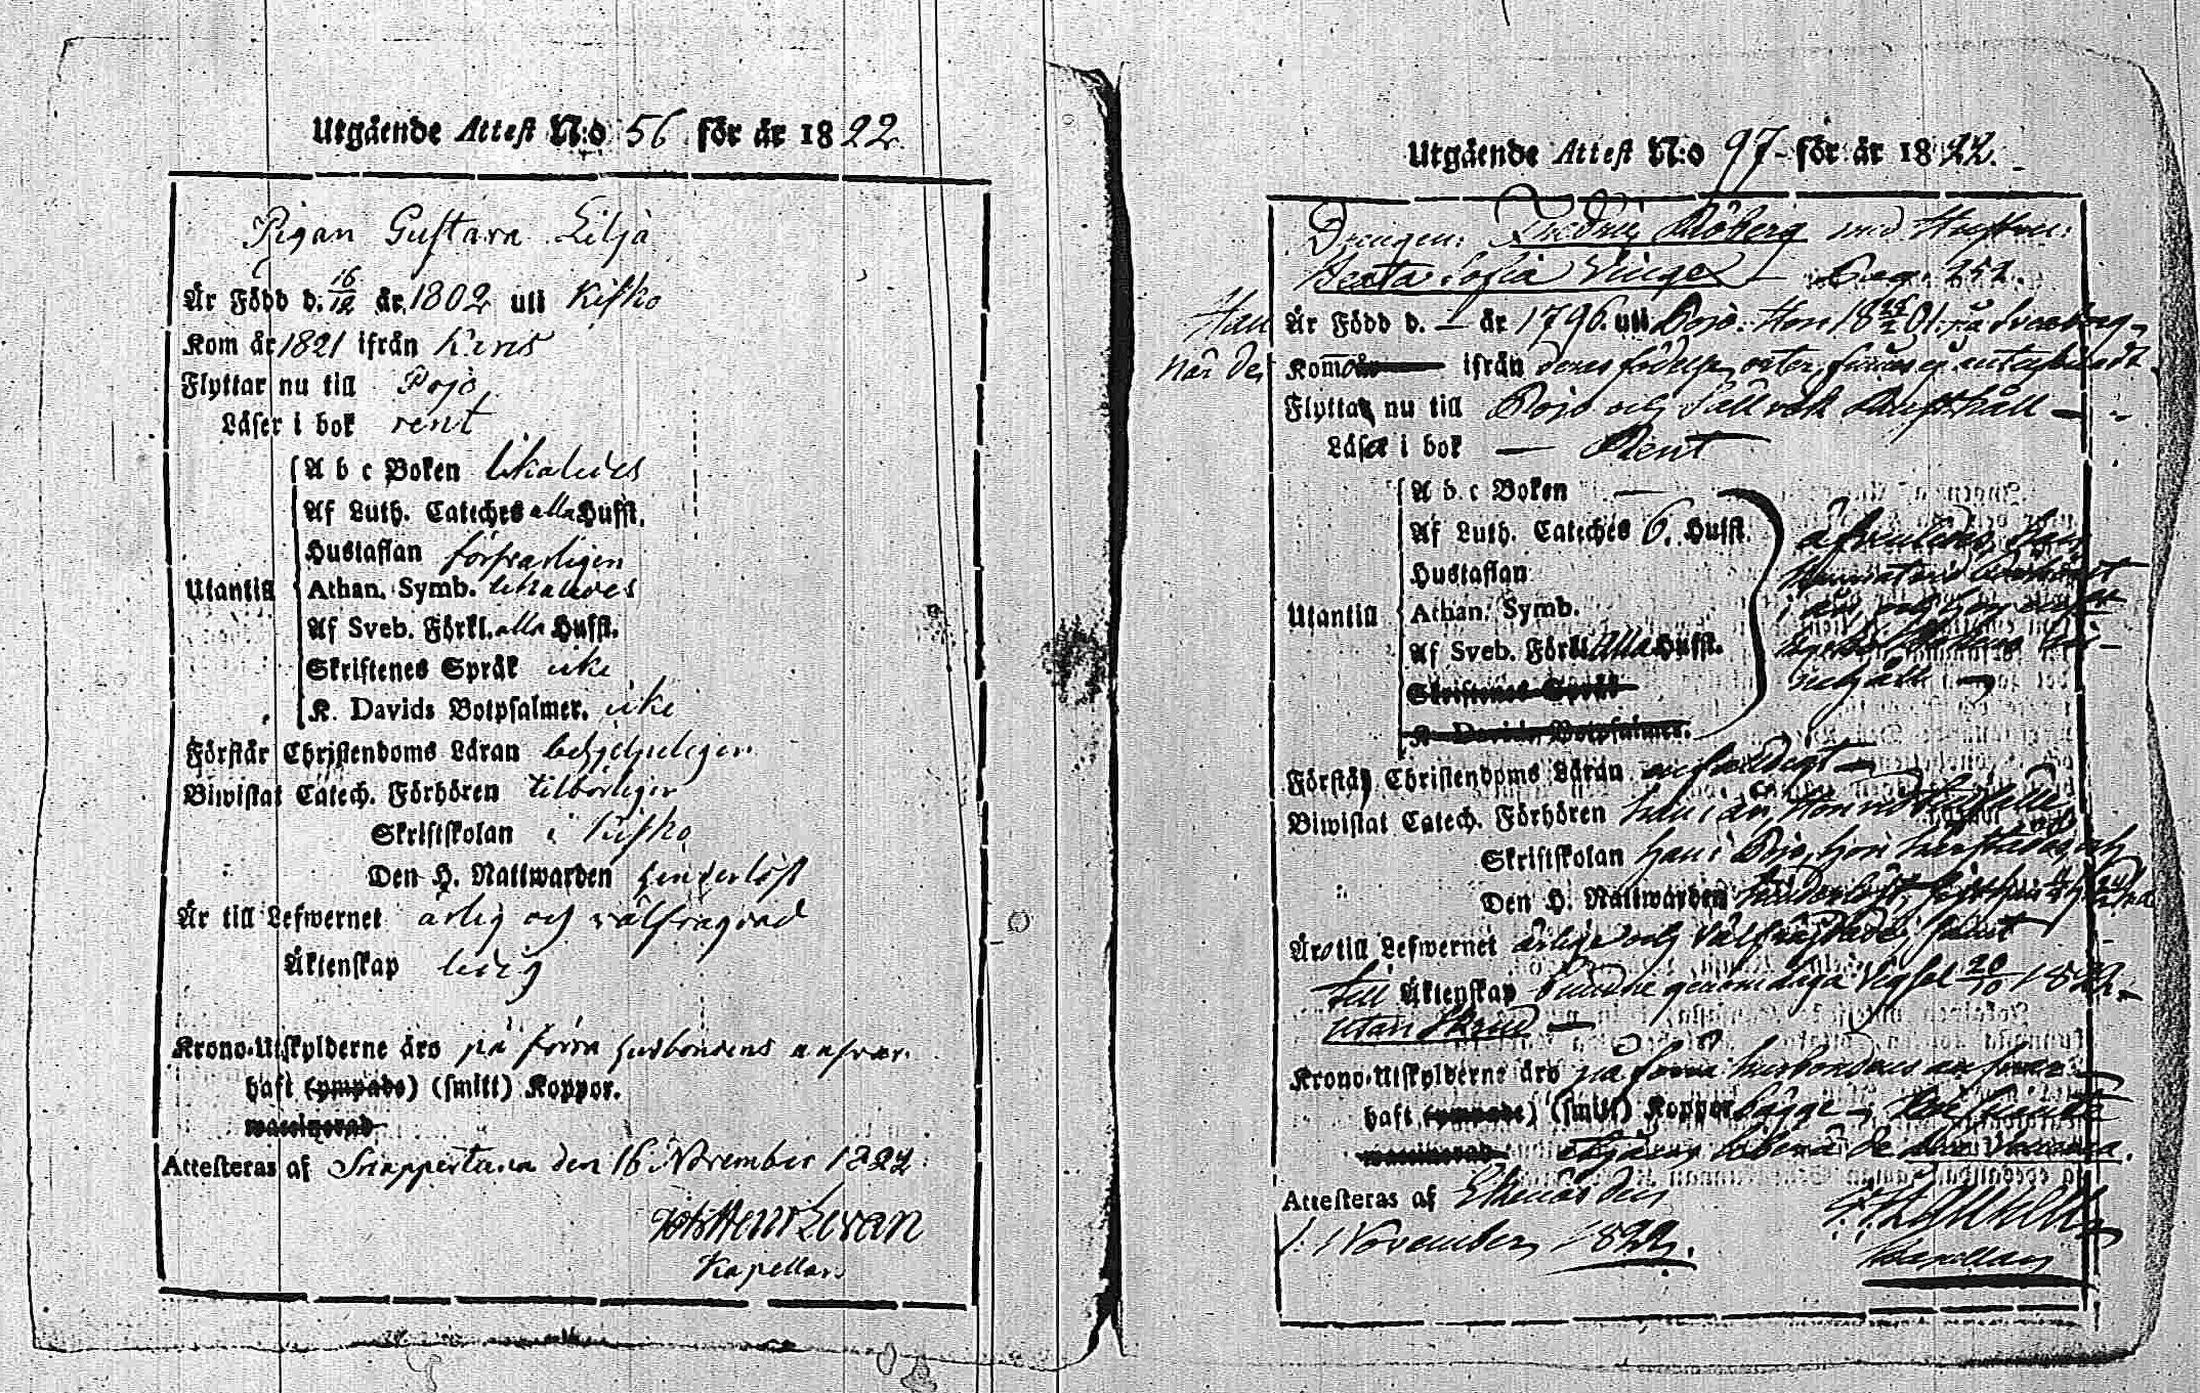 Utgående Attest N:o 56 för år 1822.
Pigan Gustava Lilja
Är Född d. 16/12 år 1802 uti Kisko
Kom år 1821 ifrån Karis
Flyttar nu till Pojo
Läser i bok rent
A b c Boken likaledes
Af Luth. Cateches alla Hufst.
Hustaflan försvarligen
Utantill Athan. Symb. likaledes
Af Sveb. Förkl. alla Hufst.
Skriftenes Språk icke
K. Davids Botpsalmer. icke
Förstår Christendoms Läran behjelpeligen
Biwistat Catech. Förhören tilbörligen
Skriftskolan i Kisko
Den H. Nattwarden hinderlöst
Är till Lefwernet ärlig och välfrägdad
Äktenskap ledig
Krono-Utskylderne äro på förra husbondens ansvar.
haft (ympade) (smitt) Koppor.
waccinerad
Attesteras af Snappertuna den 16 November 1822.
Henr Levan
Kapellan
Utgående Attest N:o 97 för år 1822.
Drengen Fredric Råberg med Hustru
Beata Sofia Pag. 252.
Han Är Född d. — år 1796. uti Pojo. Hon 18 01. på Sveaborg
När de Kommo ifrån deras födelse orter finnes ej antecknadt
Flyttar nu till Pojo och
Läsa i bok — Rent
A b c Boken —
Af Luth. Cateches 6. Hufst.
Hustaflan
Utantill Athan. Symb.
Af Sveb. Förkl. Alla Hufst.
Skriftenes Språk
K. Davids Botpsalmer.
Förstå Christendoms Läran enfaldigt —
Biwistat Catech. Förhören han i år, Hon
Skriftskolan han i Pojo, hon
Den H. Nattwarden hinderlöst,
Äro till Lefwernet ärlige och välfrägdade, samt
till Äktenskap bundne genom laga Vigsel 20/10 1822.
utan
Krono-Utskylderne äro på förra husbondens ansvar
haft (ympade) (smitt) Koppor bägge
waccinerad
Attesteras af Ekenäs den
1. November 1822.
Kapellan